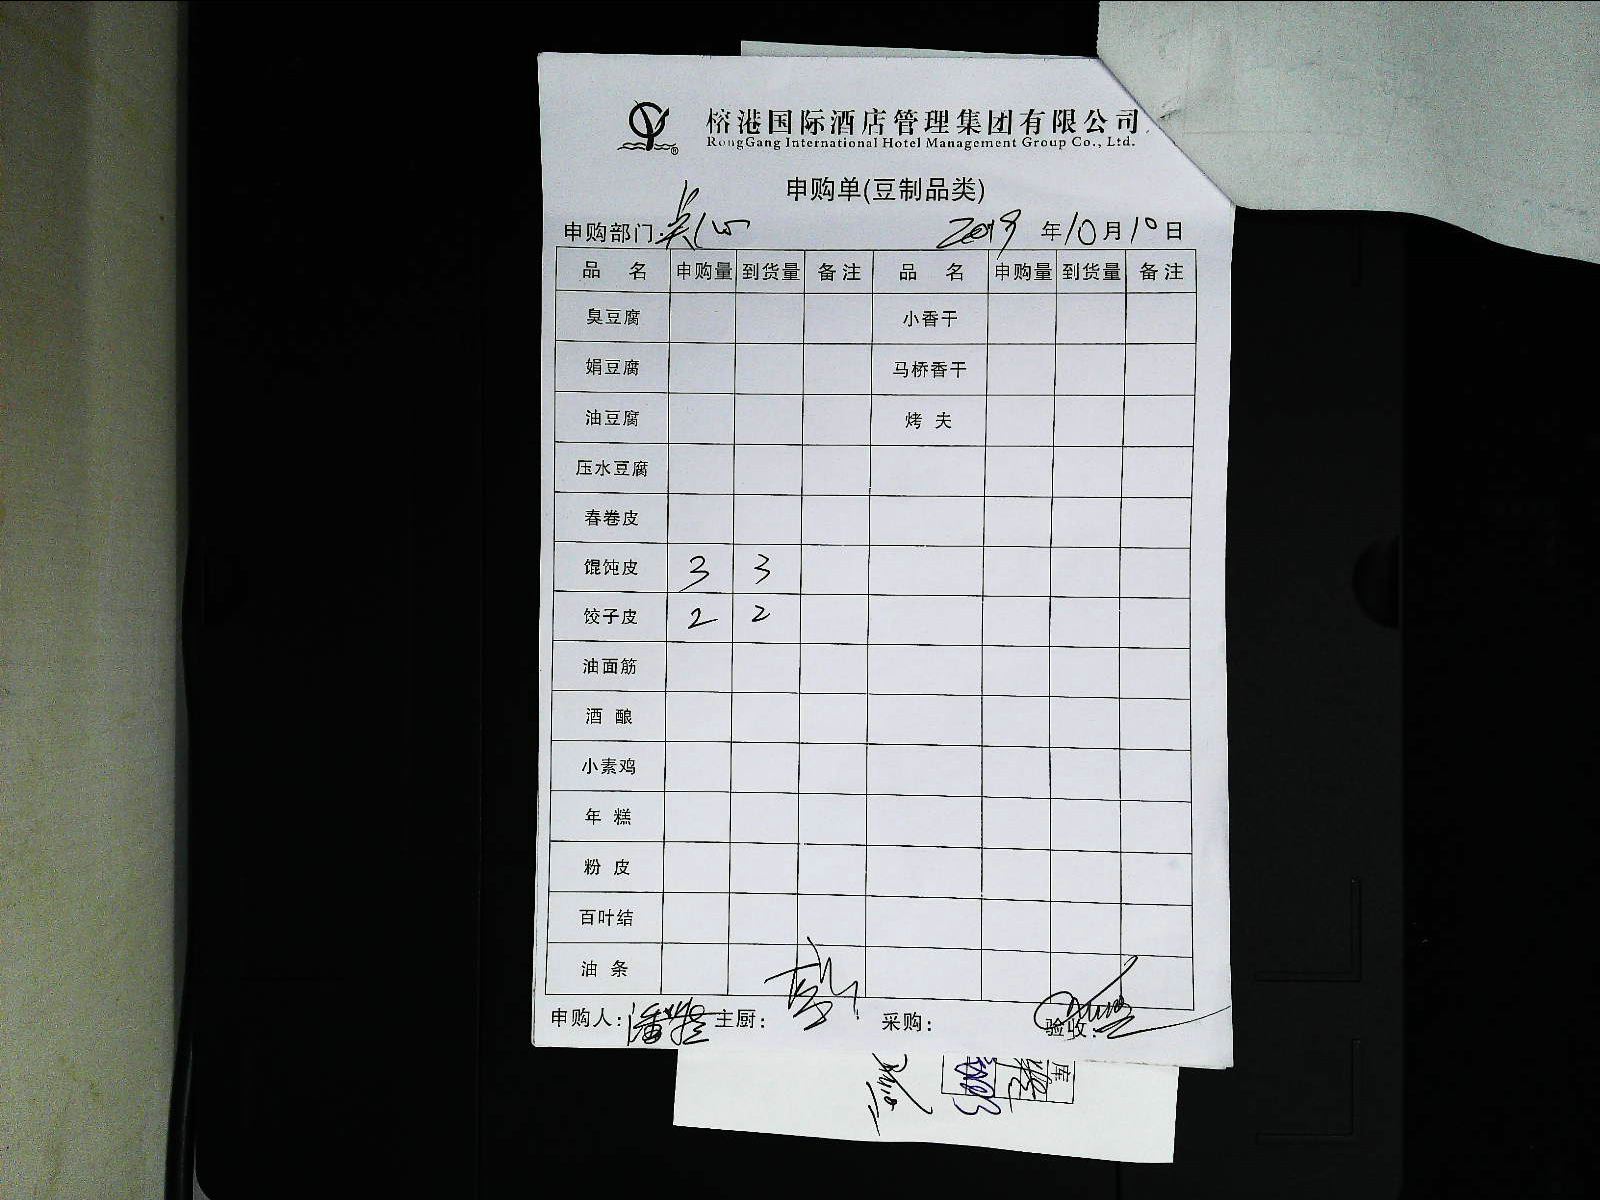 榕港国际酒店管理集团有限公司
RongGang International Hotel Management Group Co., Ltd.
申购单(豆制品类)
申购部门: 2019 年10月10日
品 名 申购量 到货量 备注 品 名 申购量 到货量 备注
臭豆腐 小香干
娟豆腐 马桥香干
油豆腐 烤 夫
压水豆腐
春卷皮
馄饨皮 3 3
饺子皮 2 2
油面筋
酒 酿
小素鸡
年 糕
粉 皮
百叶结
油 条
申购人: 主厨: 采购: 验收:
库